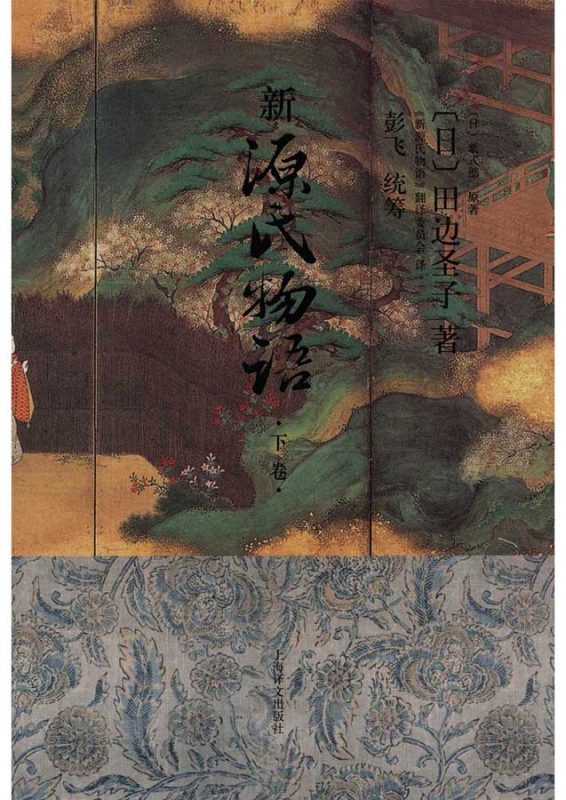 〔日〕紫式部 原著
〔日〕田边圣子 著
《新源氏物语》翻译委员会 译
彭飞 统筹
新源氏物语
·下卷·
上海译文出版社